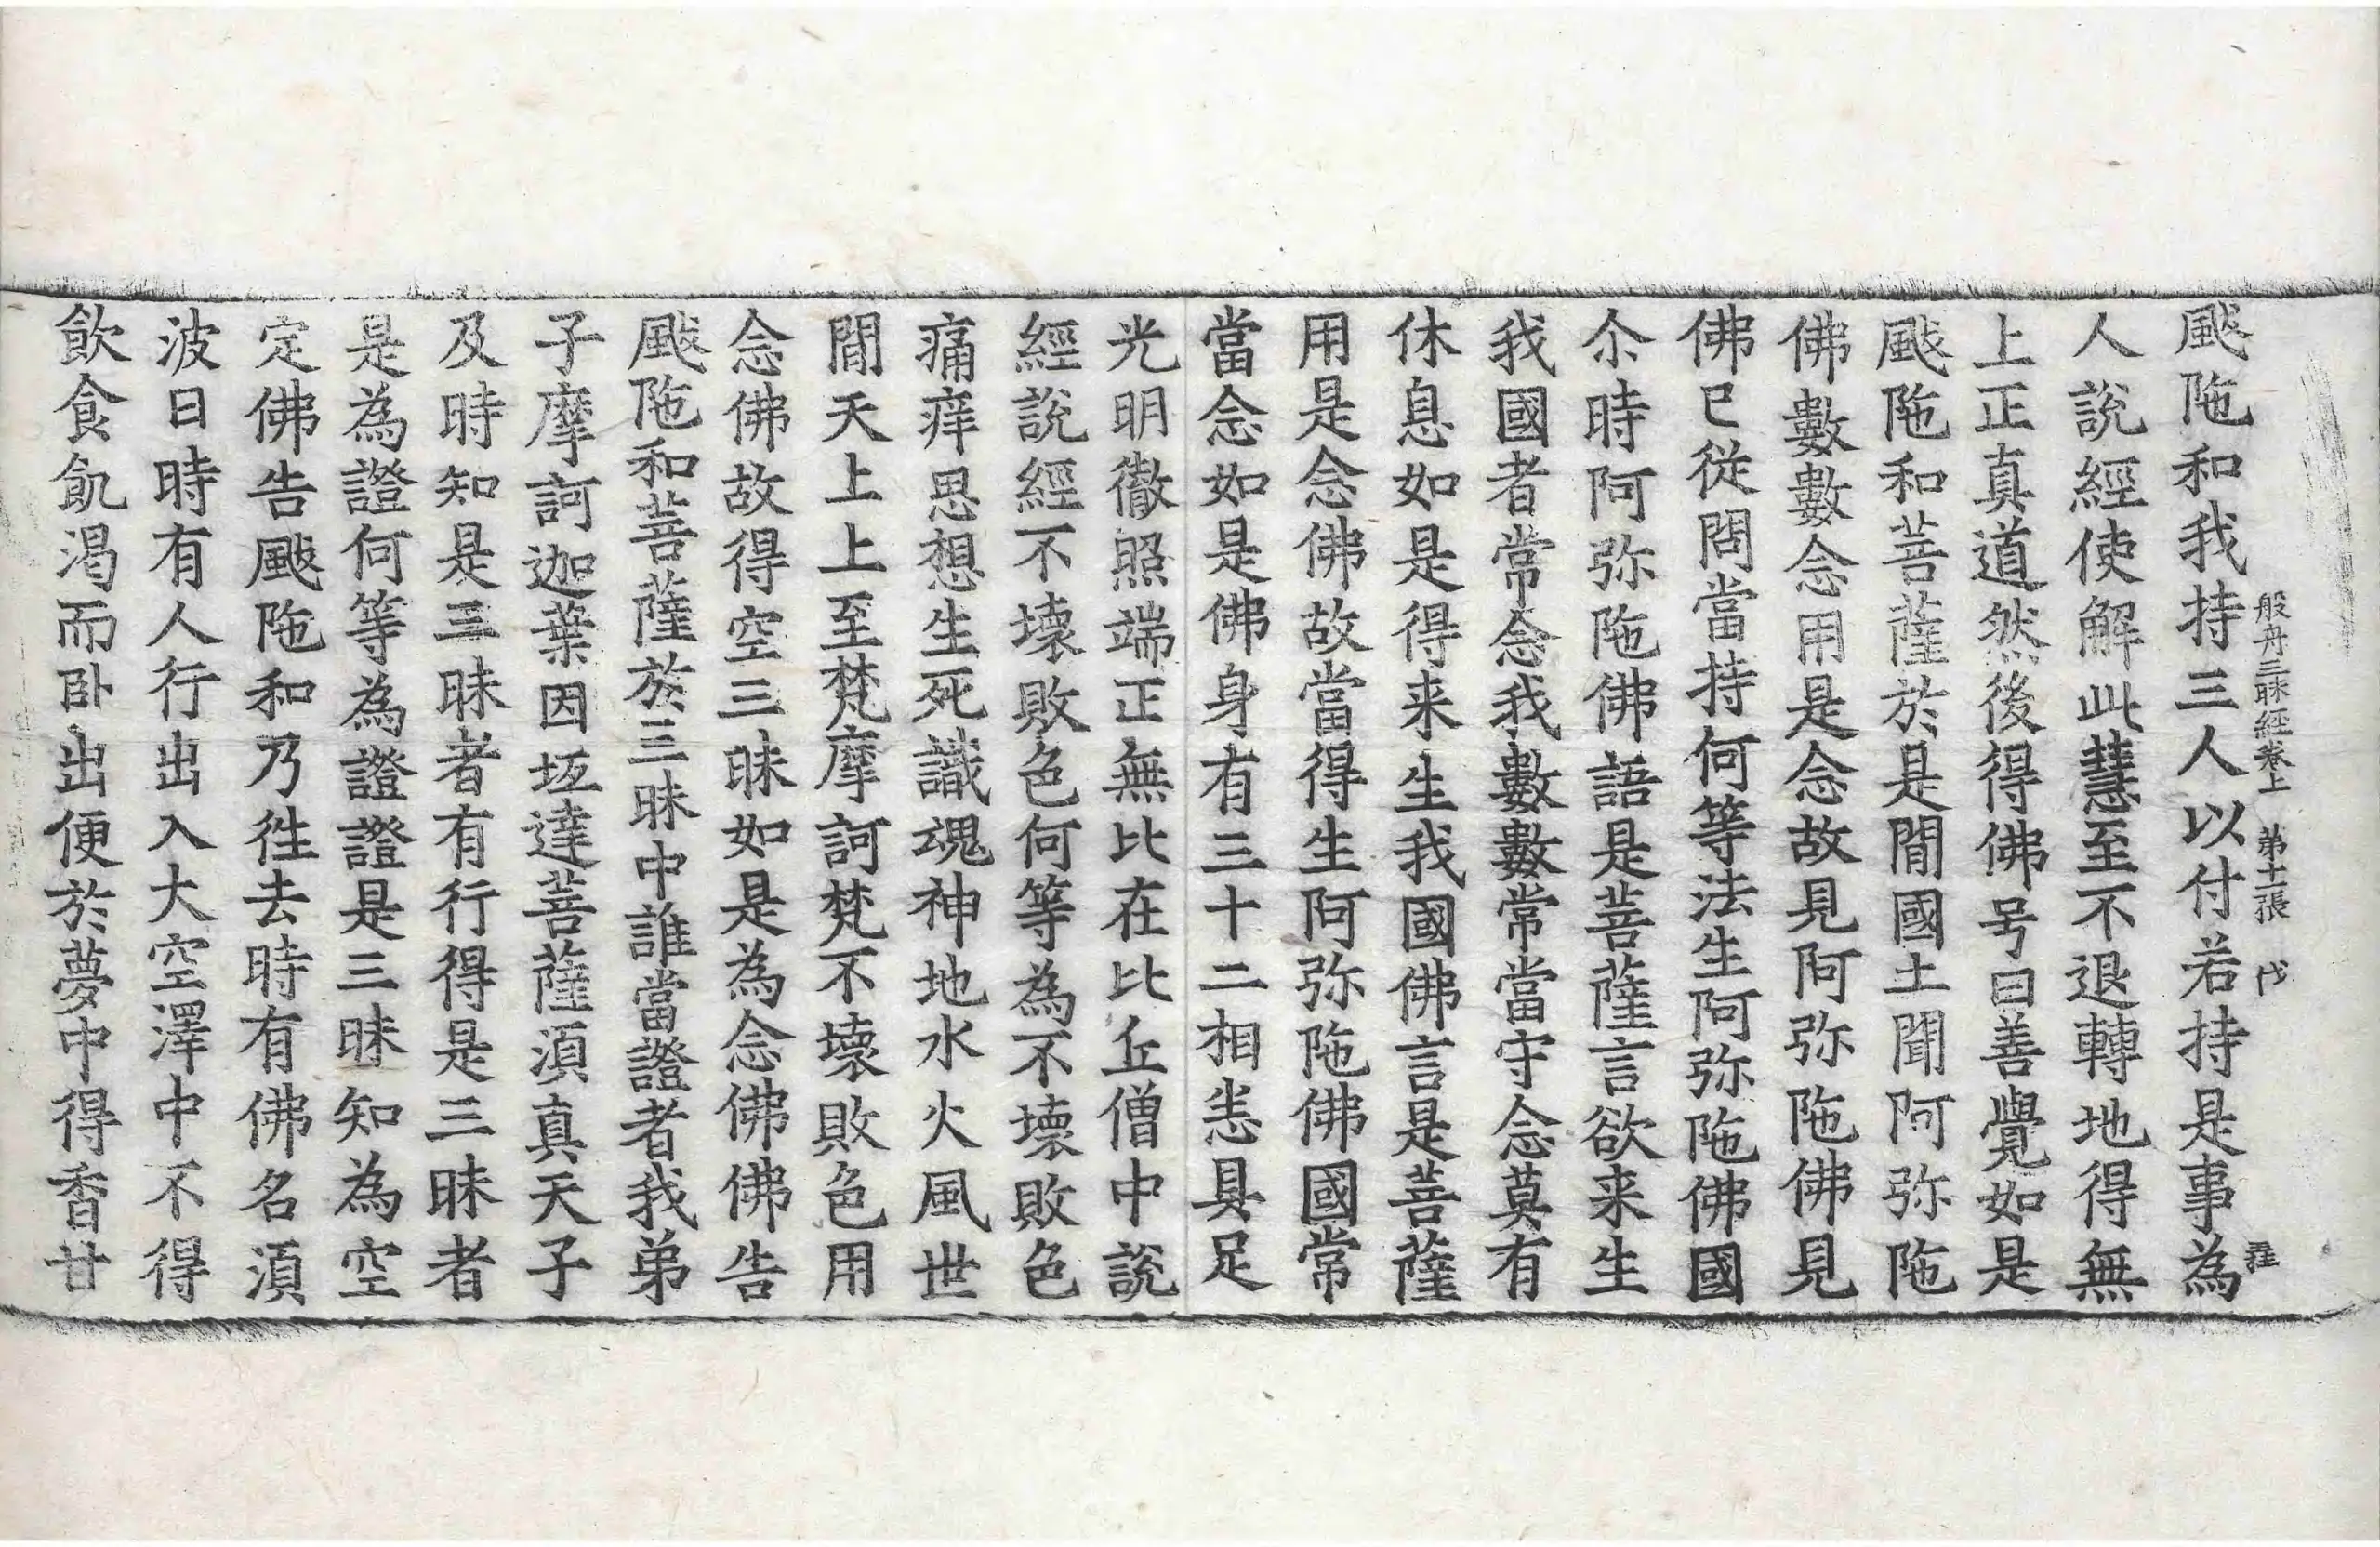 般舟三昧經卷上 第十一張 伐
颰陁和我持三人以付若持是事為
人說經使解此慧至不退轉地得無
上正真道然後得佛号曰善覺如是
颰陁和菩薩於是間國土聞阿弥陁
佛數數念用是念故見阿弥陁佛見
佛已從問當持何等法生阿弥陁佛國
尒時阿弥陁佛語是菩薩言欲来生
我國者常念我數數常當守念莫有
休息如是得来生我國佛言是菩薩
用是念佛故當得生阿弥陁佛國常
當念如是佛身有三十二相悉具足
光明徹照端正無比在比丘僧中說
經說經不壞敗色何等為不壞敗色
痛痒思想生死識魂神地水火風世
間天上上至梵摩訶梵不壞敗色用
念佛故得空三昧如是為念佛佛告
颰陁和菩薩於三昧中誰當證者我弟
子摩訶迦葉因坻達菩薩湏真天子
及時知是三昧者有行得是三昧者
是為證何等為證證是三昧知為空
定佛告颰陁和乃徃去時有佛名湏
波日時有人行出入大空澤中不得
飲食飢渴而卧出便於夢中得香甘